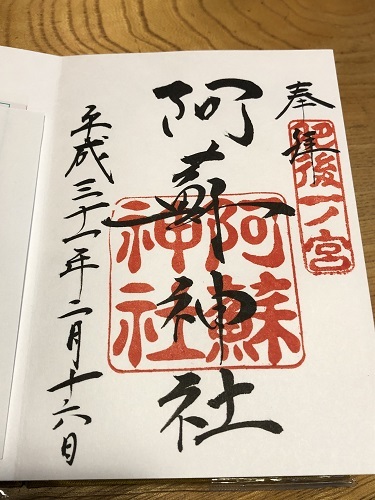 奉拝
肥後一ノ宮
阿蘇神社
阿蘇神社
平成三十一年二月十六日